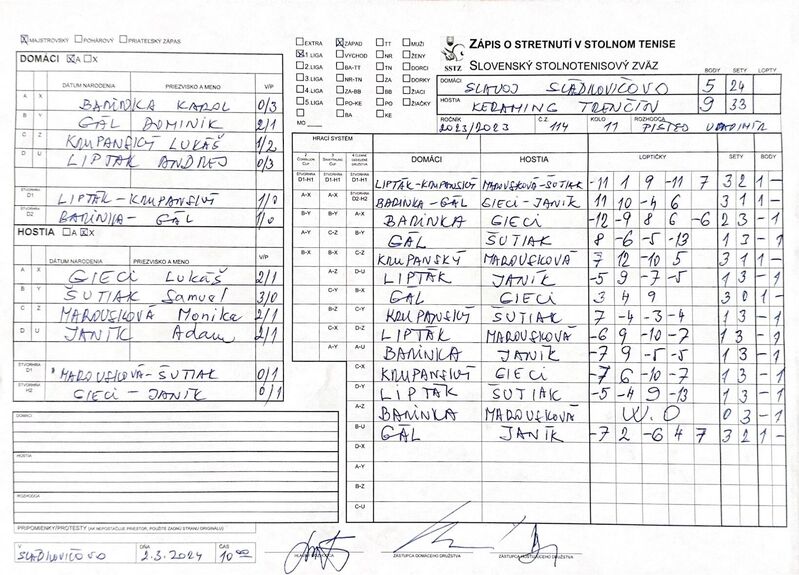 MAJSTROVSKÝ POHÁROVÝ PRIATEĽSKÝ ZÁPAS
DOMÁCI A X
DÁTUM NARODENIA PRIEZVISKO A MENO V/P
A X BARINKA KAROL 0/3
B Y GÁL DOMINIK 2/1
C Z KRUPANSKÝ LUKÁŠ 1/2
D U LIPTÁK ANDREJ 0/3
ŠTVORHRA D1 LIPTÁK-KRUPANSKÝ 1/0
ŠTVORHRA D2 BARINKA - GÁL 1/0
HOSTIA A X
DÁTUM NARODENIA PRIEZVISKO A MENO V/P
A X GIECI LUKÁŠ 2/1
B Y ŠUTIAK Samuel 3/0
C Z MAROUSKOVÁ Monika 2/1
D U JANÍK Adam 2/1
ŠTVORHRA MAROUSKOVÁ-ŠUTIAK 0/1
ŠTVORHRA H2 GIECI - JANÍK 0/1
DOMÁCI
HOSTIA
ROZHODCA
PRIPOMIENKY/PROTESTY (AK NEPOSTAČUJE PRIESTOR, POUŽITE ZADNÚ STRANU ORIGINÁLU)
V SLÁDKOVIČOVO DŇA 2.3.2024 ČAS 10 00
EXTRA ZÁPAD TT MUŽI
1.LIGA VÝCHOD NR ŽENY
2.LIGA BA-TT TN DORCI
3.LIGA NR-TN ZA DORKY
4.LIGA ZA-BB BB ŽIACI
5.LIGA PO-KE PO ŽIAČKY
MO BA KE
SSTZ
ZÁPIS O STRETNUTÍ V STOLNOM TENISE
SLOVENSKÝ STOLNOTENISOVÝ ZVÄZ
BODY SETY LOPTY
DOMÁCI SLAVOJ SLÁDKOVIČOVO 5 24
HOSTIA KERAMING TRENČÍN 9 33
ROČNÍK 2023/2023 Č.Z. 114 KOLO 11 ROZHODCA
HRACÍ SYSTÉM
DOMÁCI HOSTIA LOPTIČKY SETY BODY
ŠTVORHRA D1-H1 ŠTVORHRA D1-H1 LIPTÁK-KRUPANSKÝ MAROUSKOVÁ-ŠUTIAK -11 1 9 -11 7 3 2 1 -
A-X A-X ŠTVORHRA D2-H2 BARINKA-GÁL GIECI-JANÍK 11 10 -4 6 3 1 1 -
B-Y B-Y A-X BARINKA GIECI -12 -9 8 6 -6 2 3 - 1
A-Y C-Z B-Y GÁL ŠUTIAK 8 -6 -5 -13 1 3 - 1
B-X B-X C-Z KRUPANSKÝ MAROUSKOVÁ 7 -12 -10 5 1 3 - 1
A-Z D-U LIPTÁK JANÍK -5 9 -7 -5 1 3 - 1
C-X B-X GÁL GIECI 3 4 9 3 0 1 -
B-Z C-Y KRUPANSKÝ ŠUTIAK 7 -4 -3 -4 1 3 - 1
C-Y D-Z LIPTÁK MAROUSKOVÁ -6 9 -10 -7 1 3 - 1
A-Y A-U BARINKA JANÍK -7 9 -5 -5 1 3 - 1
C-X KRUPANSKÝ GIECI -7 6 -10 -7 1 3 - 1
D-Y LIPTÁK ŠUTIAK -5 -4 9 -13 1 3 - 1
A-Z BARINKA MAROUSKOVÁ W.O 0 3 - 1
B-U GÁL JANÍK -7 2 -6 4 7 3 2 1 -
D-X
A-Y
B-Z
C-U
HLAVNÝ ROZHODCA ZÁSTUPCA DOMÁCEHO DRUŽSTVA ZÁSTUPCA HOSŤUJÚCEHO DRUŽSTVA